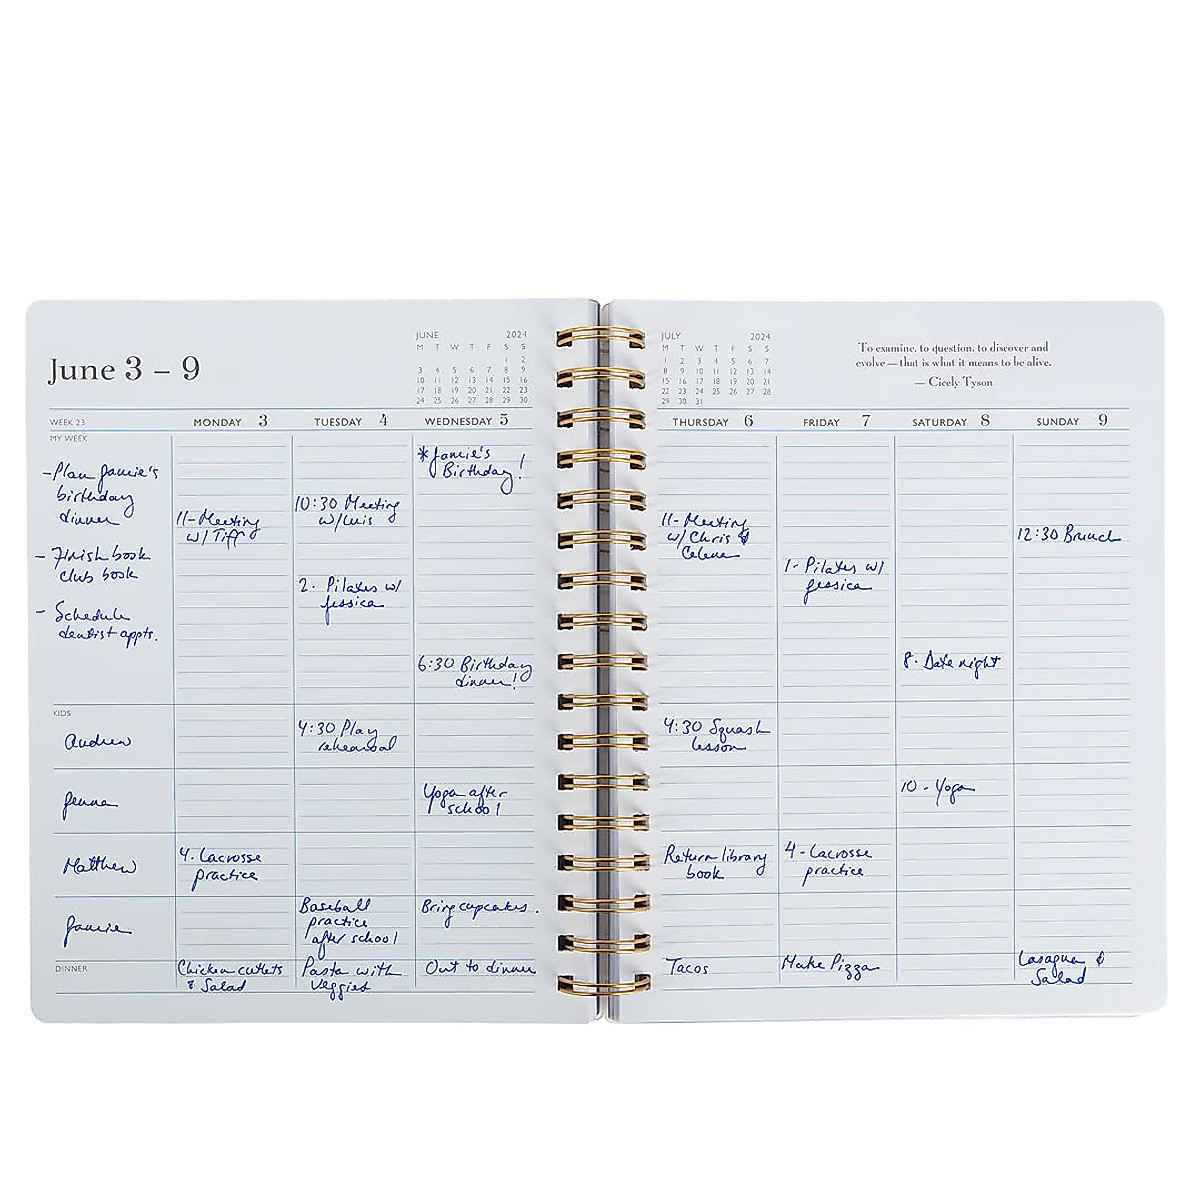 June 3 – 9
JUNE 2024
M T W T F S S
1 2
3 4 5 6 7 8 9
10 11 12 13 14 15 16
17 18 19 20 21 22 23
24 25 26 27 28 29 30
JULY 2024
M T W T F S S
1 2 3 4 5 6 7
8 9 10 11 12 13 14
15 16 17 18 19 20 21
22 23 24 25 26 27 28
29 30 31
To examine, to question, to discover and
evolve—that is what it means to be alive.
— Cicely Tyson
WEEK 23
MONDAY 3
TUESDAY 4
WEDNESDAY 5
THURSDAY 6
FRIDAY 7
SATURDAY 8
SUNDAY 9
MY WEEK
- Plan Jamie's
birthday
dinner
- Finish book
club book
- Schedule
dentist appts.
11-Meeting
w/ Tiff
10:30 Meeting
w/Luis
2. Pilates w/
Jessica
*Jamie's
Birthday!
6:30 Birthday
dinner!
11- Meeting
w/ Chris &
Celena
1- Pilates w/
Jessica
8. Date night
12:30 Brunch
KIDS
Andrew
4:30 Play
rehearsal
4:30 Squash
lesson
Jenna
Yoga after
school
10 - Yoga
Matthew
4. Lacrosse
practice
Return library
book
4 - Lacrosse
practice
Jamie
Baseball
practice
after school
Bring cupcakes.
DINNER
Chicken cutlets
& Salad
Pasta with
Veggies
Out to dinner
Tacos
Make Pizza
Lasagna &
Salad